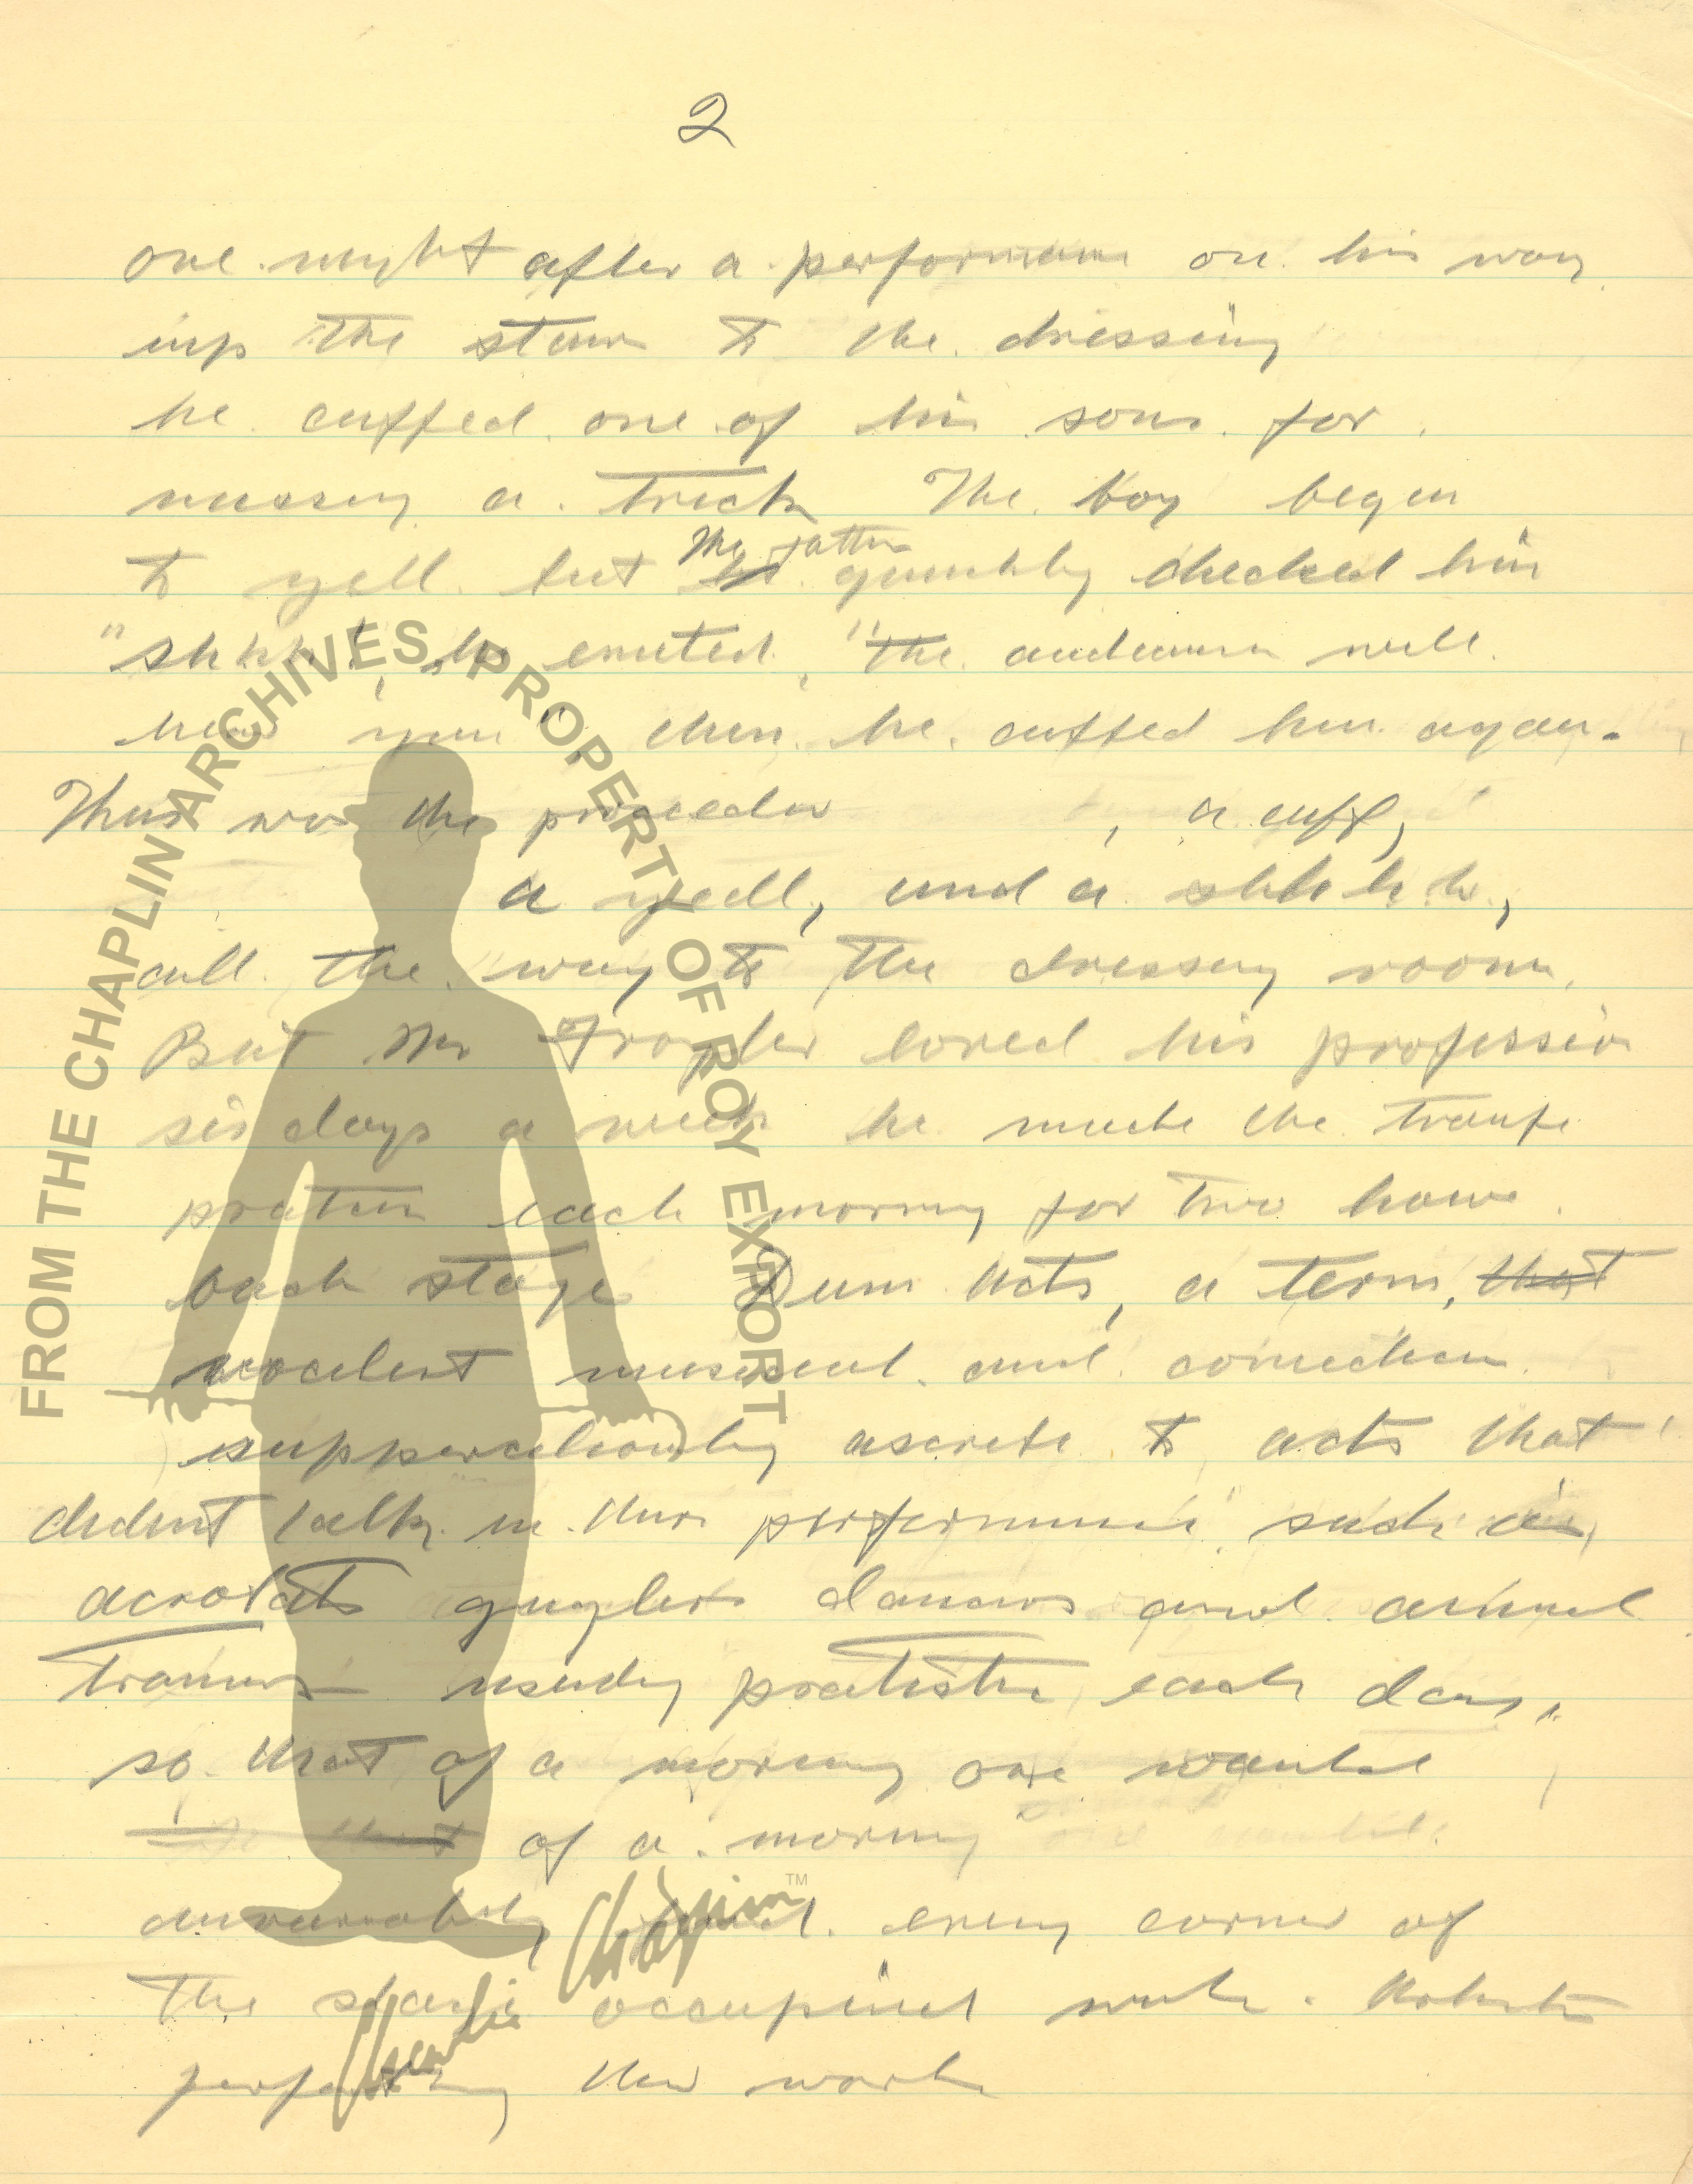 2
one night after a performance on his way
up the stairs to the dressing
he cuffed one of his sons for
missing a trick The boy began
to yell but the father quickly checked him
"shhh!, he , "the audience will
hear you" then he cuffed him again.
Thus was the , a cuff,
a yell, and a shhhhh,
all the way to the dressing room.
But Mr loved his profession
six days a week he made the troupe
each morning for two hours.
back stage Dum acts, a term, that
vocalist musical and comedian
to acts that
dident talk in their performance such as
acrobats dancers and animal
trainers each day,
so that of a morning one would
so that of a morning
find every corner of
the stage with
perfecting their work
FROM THE CHAPLIN ARCHIVES, PROPERTY OF ROY EXPORT
Charlie Chaplin™